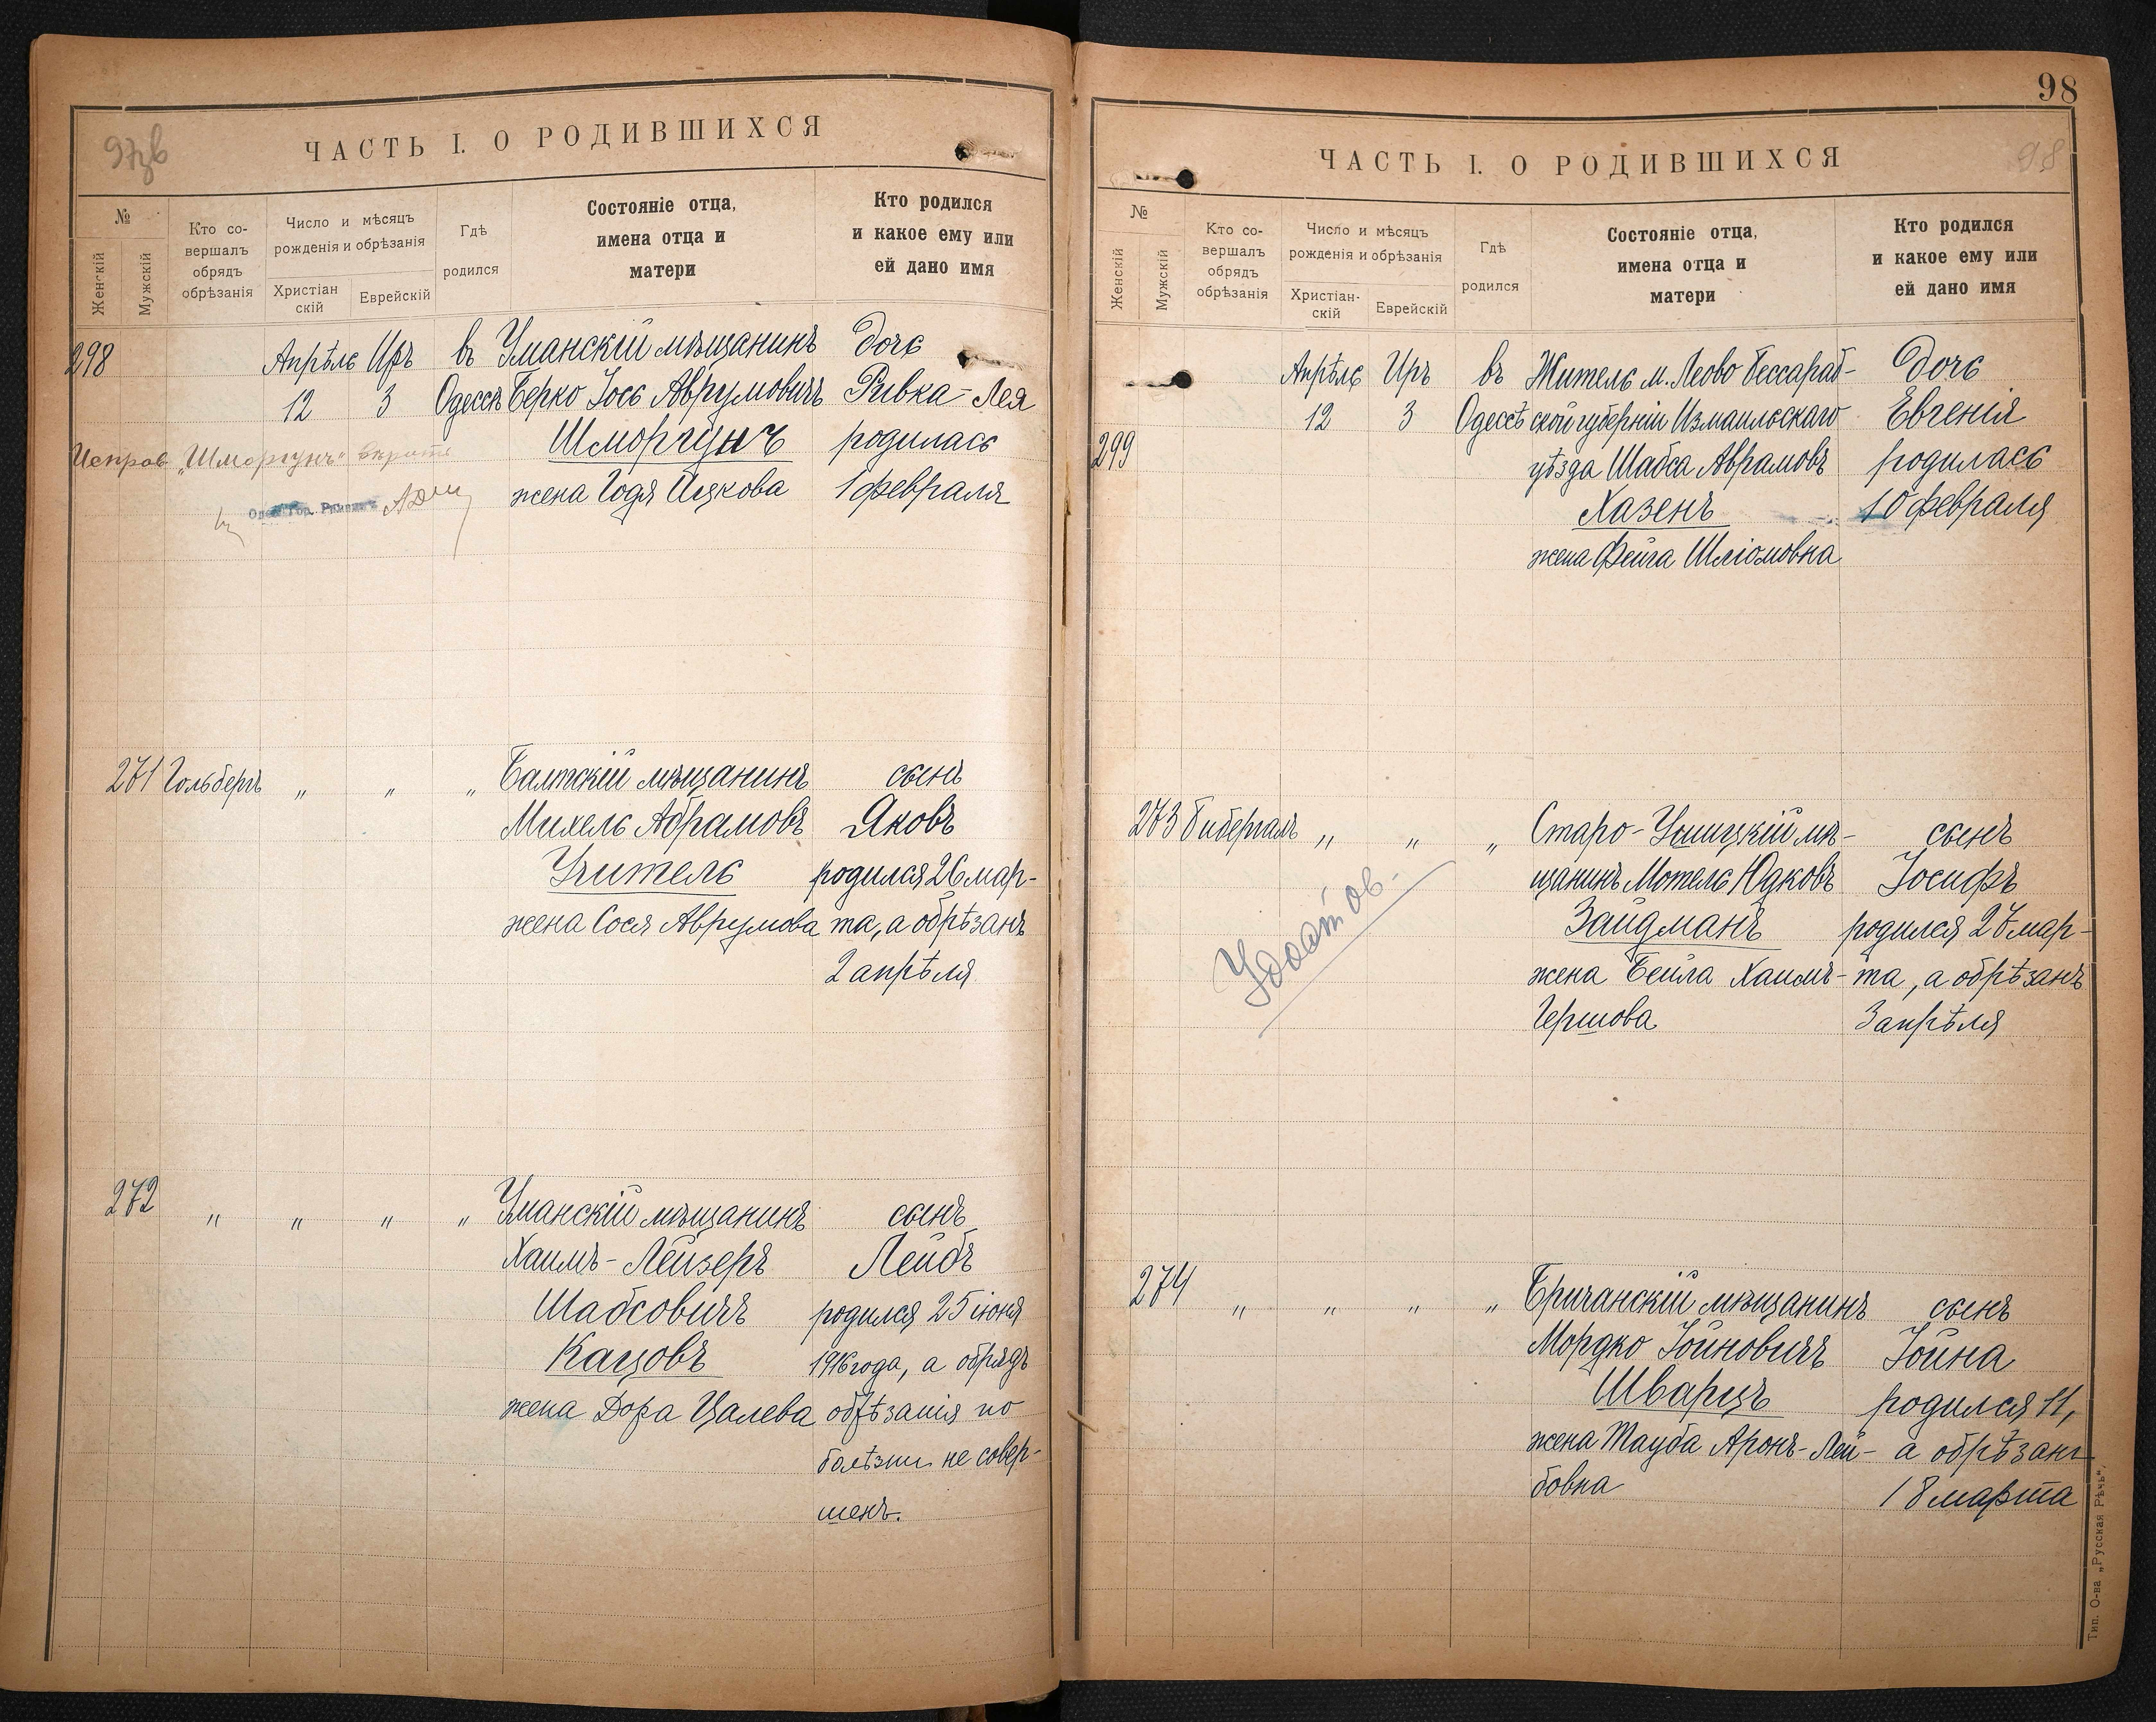 97зв
ЧАСТЬ I. О РОДИВШИХСЯ
№
Женскій
Мужскій
Кто со-
вершалъ
обрядъ
обрѣзанія
Число и мѣсяцъ
рожденія и обрѣзанія
Христіан
скій
Еврейскій
Гдѣ
родился
Состояніе отца,
имена отца и
матери
Кто родился
и какое ему или
ей дано имя
298 Апрѣль Иръ въ Уманскій мѣщанинъ Дочь
12 3 Одессѣ Берко Іось Аврумовичъ Ривка-Лея
Шморгунъ родилась
Исправ. „Шморгунъ“
жена Годя Ицкова 1 февраля
271 Гольбергъ „ „ „ Балтскій мѣщанинъ сынъ
Михель Абрамовъ Яковъ
Учитель родился 26 мар-
жена Сося Аврумова та, а обрѣзанъ
2 апрѣля
272 „ „ „ „ Уманскій мѣщанинъ сынъ
Хаимъ-Лейзеръ Лейбъ
Шабсовичъ родился 25 іюня
Кацовъ 1916 года, а обрядъ
жена Дора Цалева обрѣзанія по
болѣзни не совер-
шенъ.
98
98
ЧАСТЬ I. О РОДИВШИХСЯ
№
Женскій
Мужскій
Кто со-
вершалъ
обрядъ
обрѣзанія
Число и мѣсяцъ
рожденія и обрѣзанія
Христіан-
скій
Еврейскій
Гдѣ
родился
Состояніе отца,
имена отца и
матери
Кто родился
и какое ему или
ей дано имя
Апрѣль Иръ въ Житель м. Леово Бессараб- Дочь
12 3 Одессѣ ской губерніи Измаильскаго Евгенія
299 уѣзда Шабса Абрамовъ родилась
Хазенъ 10 февраля
жена Фейга Шліомовна
273 Бибергалъ „ „ „ Старо-Ушицкій мѣ- сынъ
щанинъ Мотель Юдковъ Іосифъ
Зайдманъ родился 27 мар-
жена Бейла Хаимъ- та, а обрѣзанъ
Гершова 3 апрѣля
Удостов.
274 „ „ „ „ Бричанскій мѣщанинъ сынъ
Мордко Іойновичъ Іойна
Шварцъ родился 11,
жена Тауба Аронъ-Лей- а обрѣзанъ
бовна 18 марта
Тип. О-ва „Русская Рѣчь“.